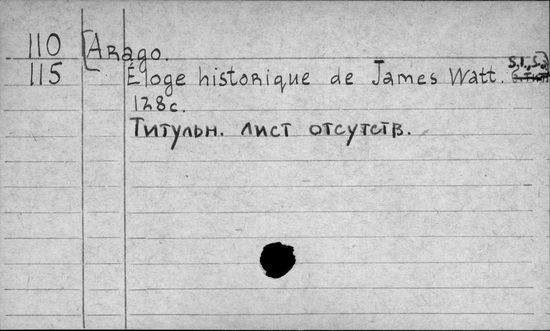 110 [Arago.
115 Éloge historique de James Watt. S.l., S.a.
128 с.
Титульн. лист отсутств.